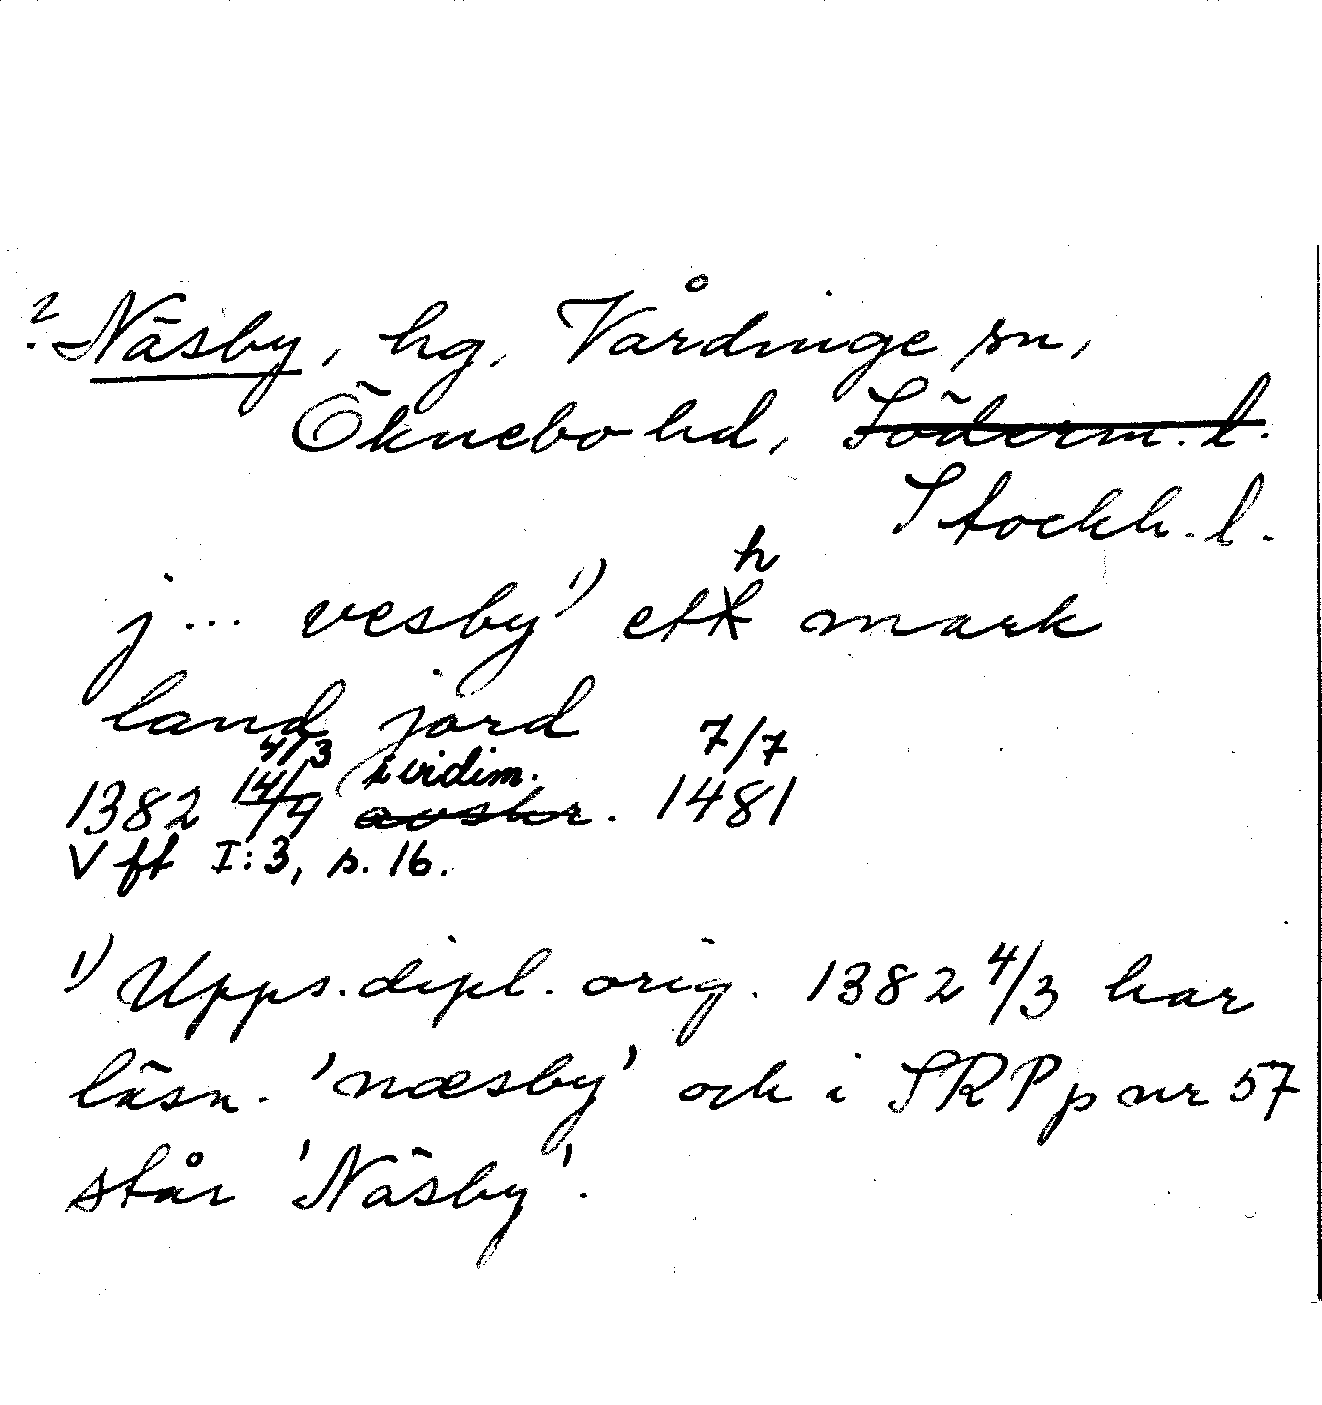 ? Näsby, hg, Vårdinge sn,
Öknebo hd, Söderm. l.
Stockh. l.
j... vesby¹⁾ etth mark
land jord
4/3 7/7
1382 14/9 i vidim. avskr. 1481
Vff I:3, s. 16.
1) Upps. dipl. orig. 1382 4/3 har
läsn. 'næsby' och i SRPp nr 57
står 'Näsby'.